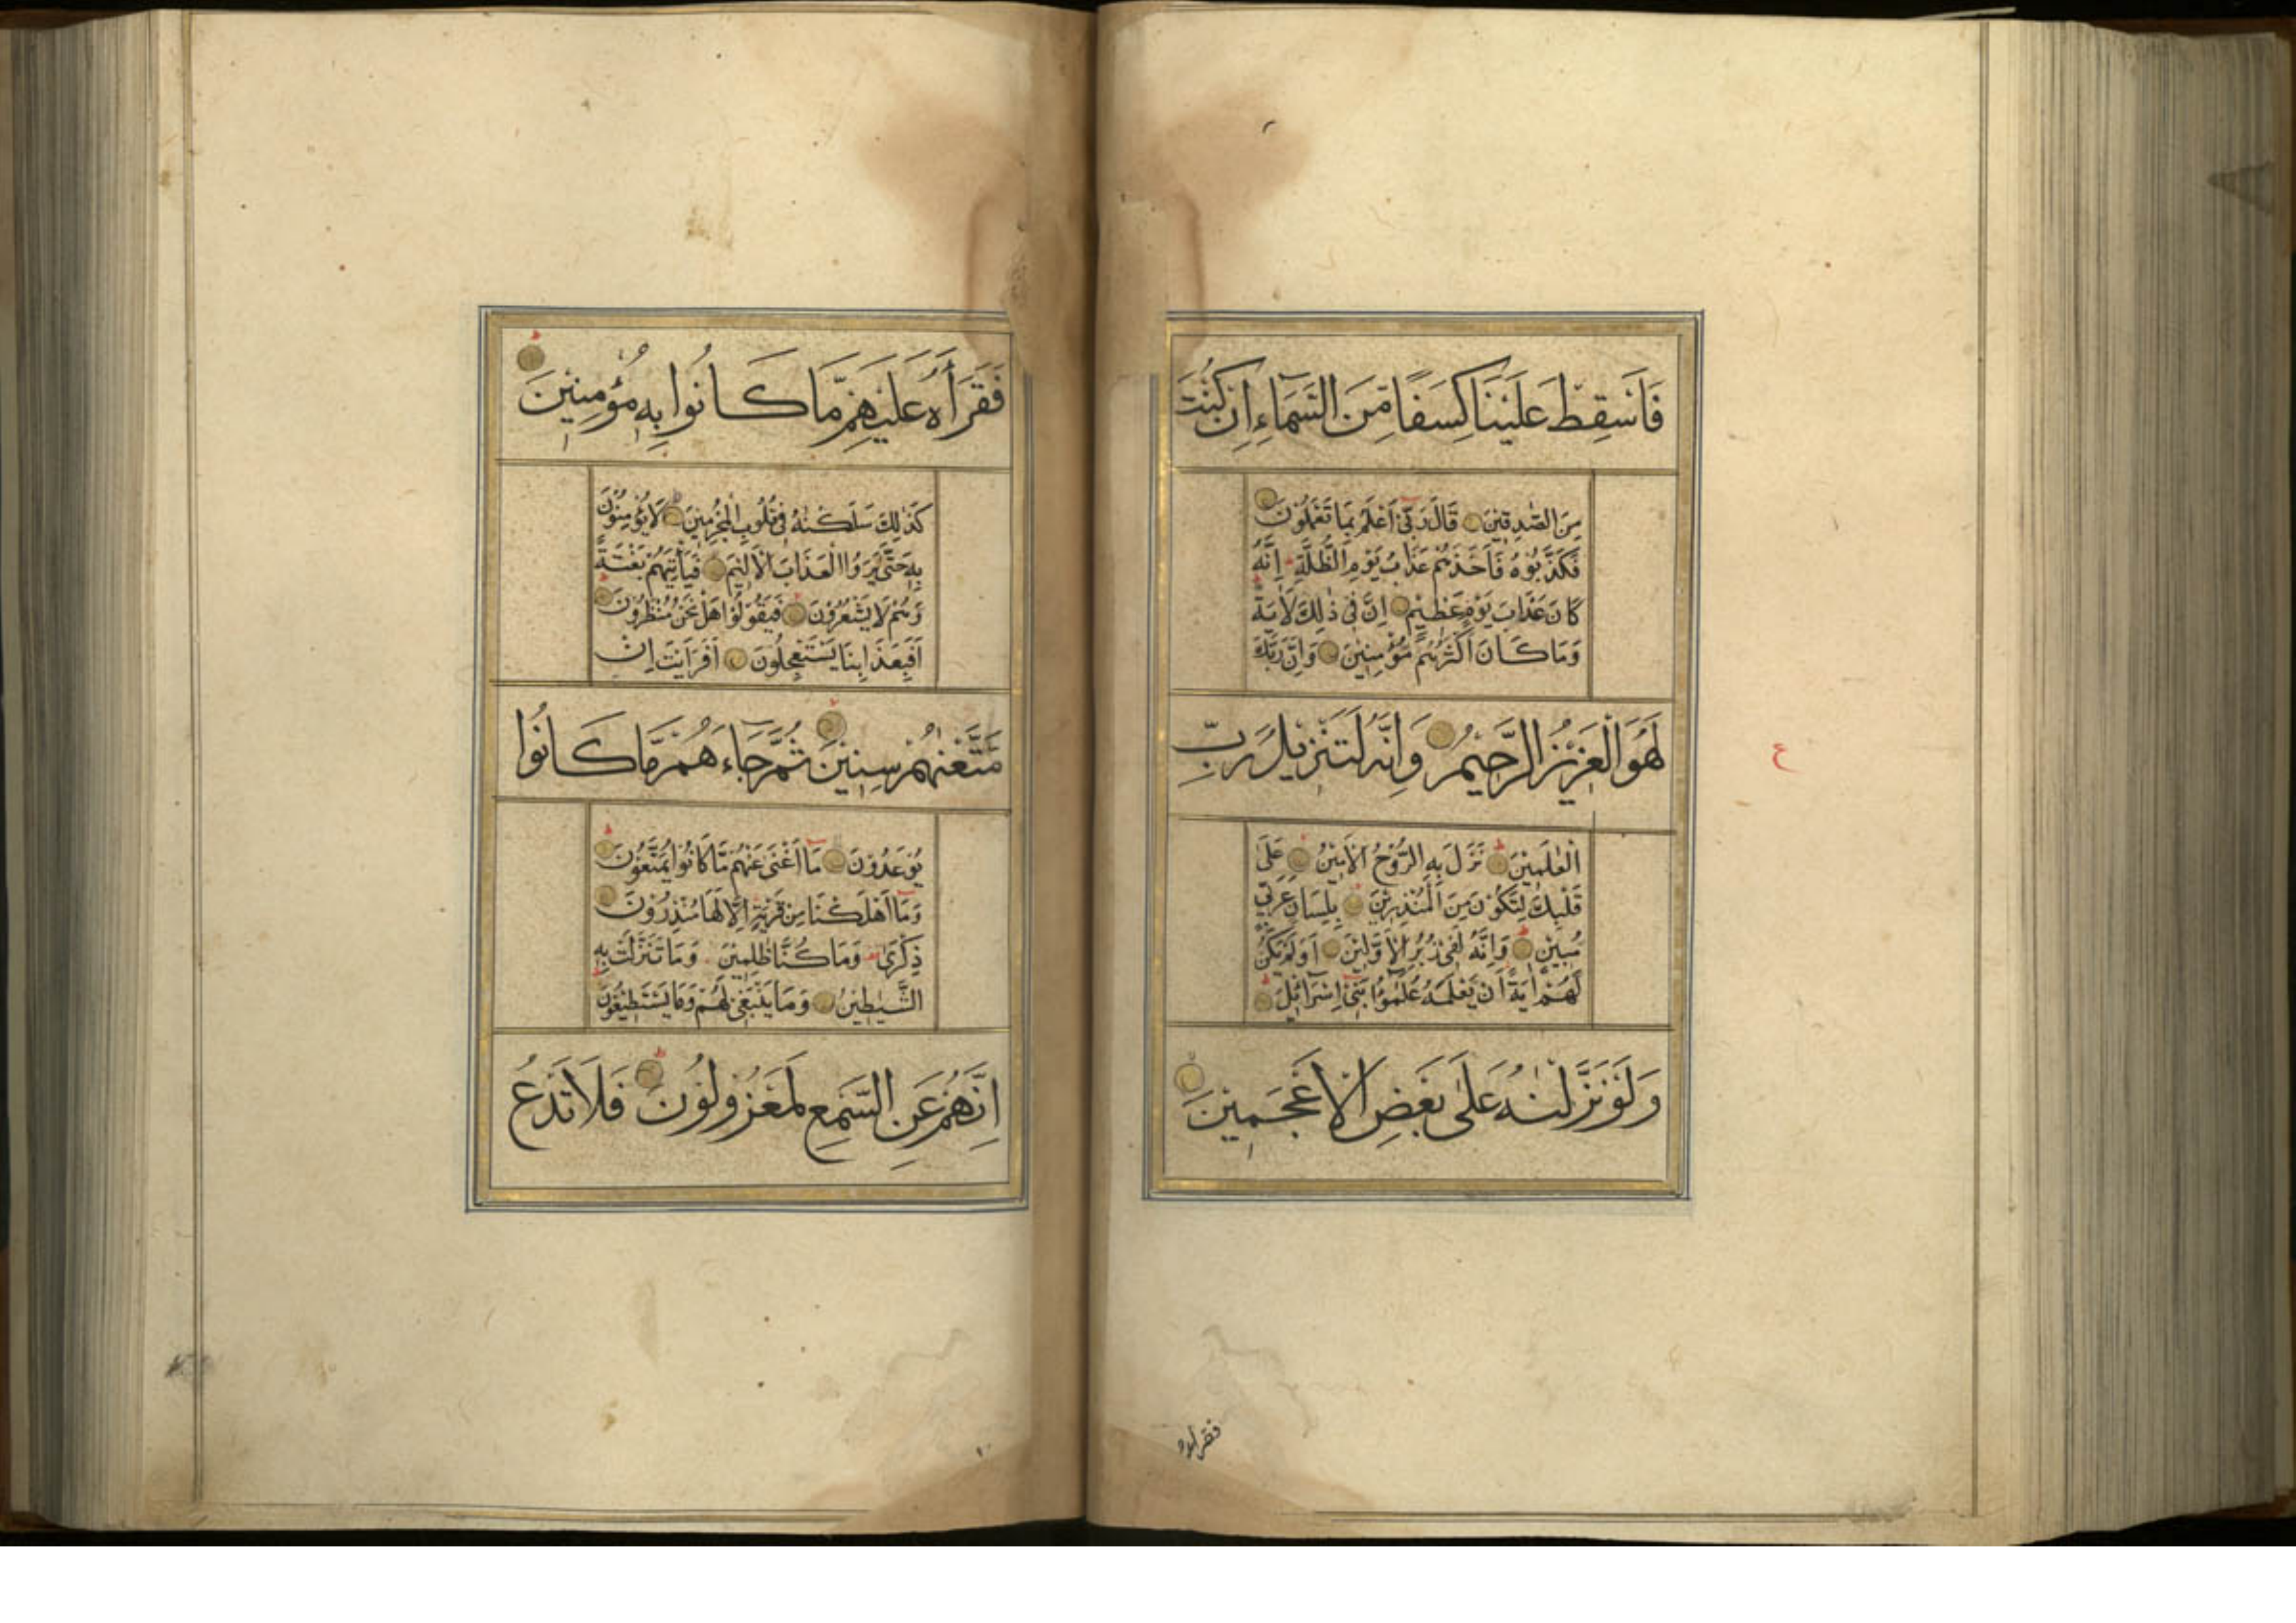 فَاَسْقِطْ عَلَيْنَا كِسَفًا مِّنَ السَّمَاءِ اِنْ كُنْتَ
مِنَ الصّٰدِقِيْنَ قَالَ رَبّٓىْ اَعْلَمُ بِمَا تَعْمَلُوْنَ
فَكَذَّبُوْهُ فَاَخَذَهُمْ عَذَابُ يَوْمِ الظُّلَّةِ اِنَّهُ
كَانَ عَذَابَ يَوْمٍ عَظِيْمٍ اِنَّ فِىْ ذٰلِكَ لَاٰيَةً
وَمَا كَانَ اَكْثَرُهُمْ مُؤْمِنِيْنَ وَاِنَّ رَبَّكَ
لَهُوَ الْعَزِيْزُ الرَّحِيْمُ وَاِنَّهُ لَتَنْزِيْلُ رَبِّ
الْعٰلَمِيْنَ نَزَلَ بِهِ الرُّوْحُ الْاَمِيْنُ عَلٰى
قَلْبِكَ لِتَكُوْنَ مِنَ الْمُنْذِرِيْنَ بِلِسَانٍ عَرَبِىٍّ
مُبِيْنٍ وَاِنَّهُ لَفِىْ زُبُرِ الْاَوَّلِيْنَ اَوَلَمْ يَكُنْ
لَهُمْ اٰيَةً اَنْ يَعْلَمَهُ عُلَمٰٓؤُا بَنِىْٓ اِسْرَآئِيْلَ
وَلَوْ نَزَّلْنٰهُ عَلٰى بَعْضِ الْاَعْجَمِيْنَ
ع
فقراه
فَقَرَاَهُ عَلَيْهِمْ مَّا كَانُوا بِهِ مُؤْمِنِيْنَ
كَذٰلِكَ سَلَكْنٰهُ فِىْ قُلُوْبِ الْمُجْرِمِيْنَ لَا يُؤْمِنُوْنَ
بِهِ حَتّٰى يَرَوُا الْعَذَابَ الْاَلِيْمَ فَيَاْتِيَهُمْ بَغْتَةً
وَهُمْ لَا يَشْعُرُوْنَ فَيَقُوْلُوْا هَلْ نَحْنُ مُنْظَرُوْنَ
اَفَبِعَذَابِنَا يَسْتَعْجِلُوْنَ اَفَرَاَيْتَ اِنْ
مَتَّعْنٰهُمْ سِنِيْنَ ثُمَّ جَاءَهُمْ مَّا كَانُوا
يُوْعَدُوْنَ مَآ اَغْنٰى عَنْهُمْ مَّا كَانُوْا يُمَتَّعُوْنَ
وَمَآ اَهْلَكْنَا مِنْ قَرْيَةٍ اِلَّا لَهَا مُنْذِرُوْنَ
ذِكْرٰى وَمَا كُنَّا ظٰلِمِيْنَ وَمَا تَنَزَّلَتْ بِهِ
الشَّيٰطِيْنُ وَمَا يَنْبَغِىْ لَهُمْ وَمَا يَسْتَطِيْعُوْنَ
اِنَّهُمْ عَنِ السَّمْعِ لَمَعْزُوْلُوْنَ فَلَا تَدْعُ